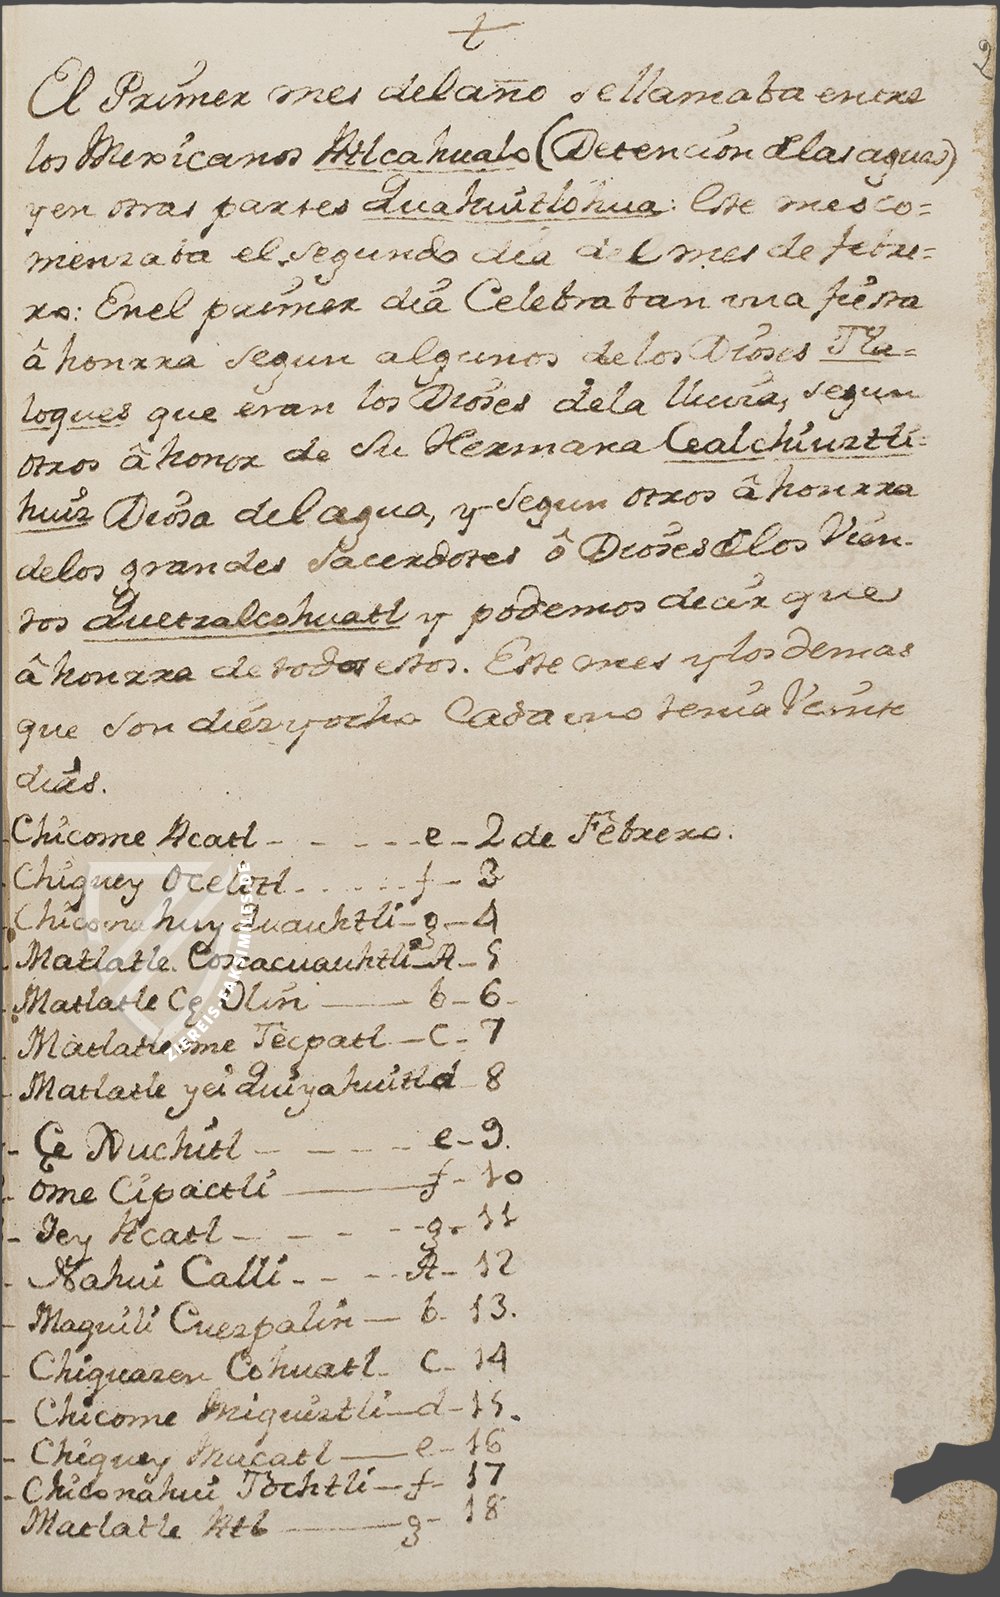 2
El Primer mes del año se llamaba entre
los Mexicanos Atlcahualo (Detencion de las aguas)
y en otras partes Quahuitlohua: Este mes co=
menzaba el segundo dia del mes de febre-
ro: En el primer dia Celebraban una fiesta
â honrra segun algunos de los Dioses Tla=
loques que eran los Dioses de la lluvia, segun
otros â honor de su Hermana Cealchiuztli-
huiz Diosa del agua, y segun otros â honrra
delos grandes Sacerdotes ô Dioses de los Vien-
tos Quetzalcohuatl y podemos decir que
â honrra de todos estos. Este mes y los demas
que son diez y ocho Cada uno tenia Veinte
dias.
- Chicome Acatl - - - - - e - 2 de Febrero.
- Chiguey Ocelotl - - - - - f - 3
- Chiconahuy Quauhtli - g - 4
- Matlatle Cozcacuauhtli - A - 5
- Matlatle Çe Olin - b - 6 -
- Matlatle ome Tecpatl - C - 7
- Matlatle yei Quiyahuitl d 8
- Çe Xuchitl - - - - - e - 9.
- ôme Cipactli - f - 10
- Yey Acatl - - - - - g - 11
- Nahui Calli - - - - A - 12
- Maguili Cuezpalin - b - 13.
- Chiguazen Cohuatl - C - 14
- Chicome Miguiztli - d - 15.
- Chiguey Macatl - e - 16
- Chiconahui Tochtli - f - 17
Matlatle Atl - g - 18
ZIEREIS-FAKSIMILES.DE